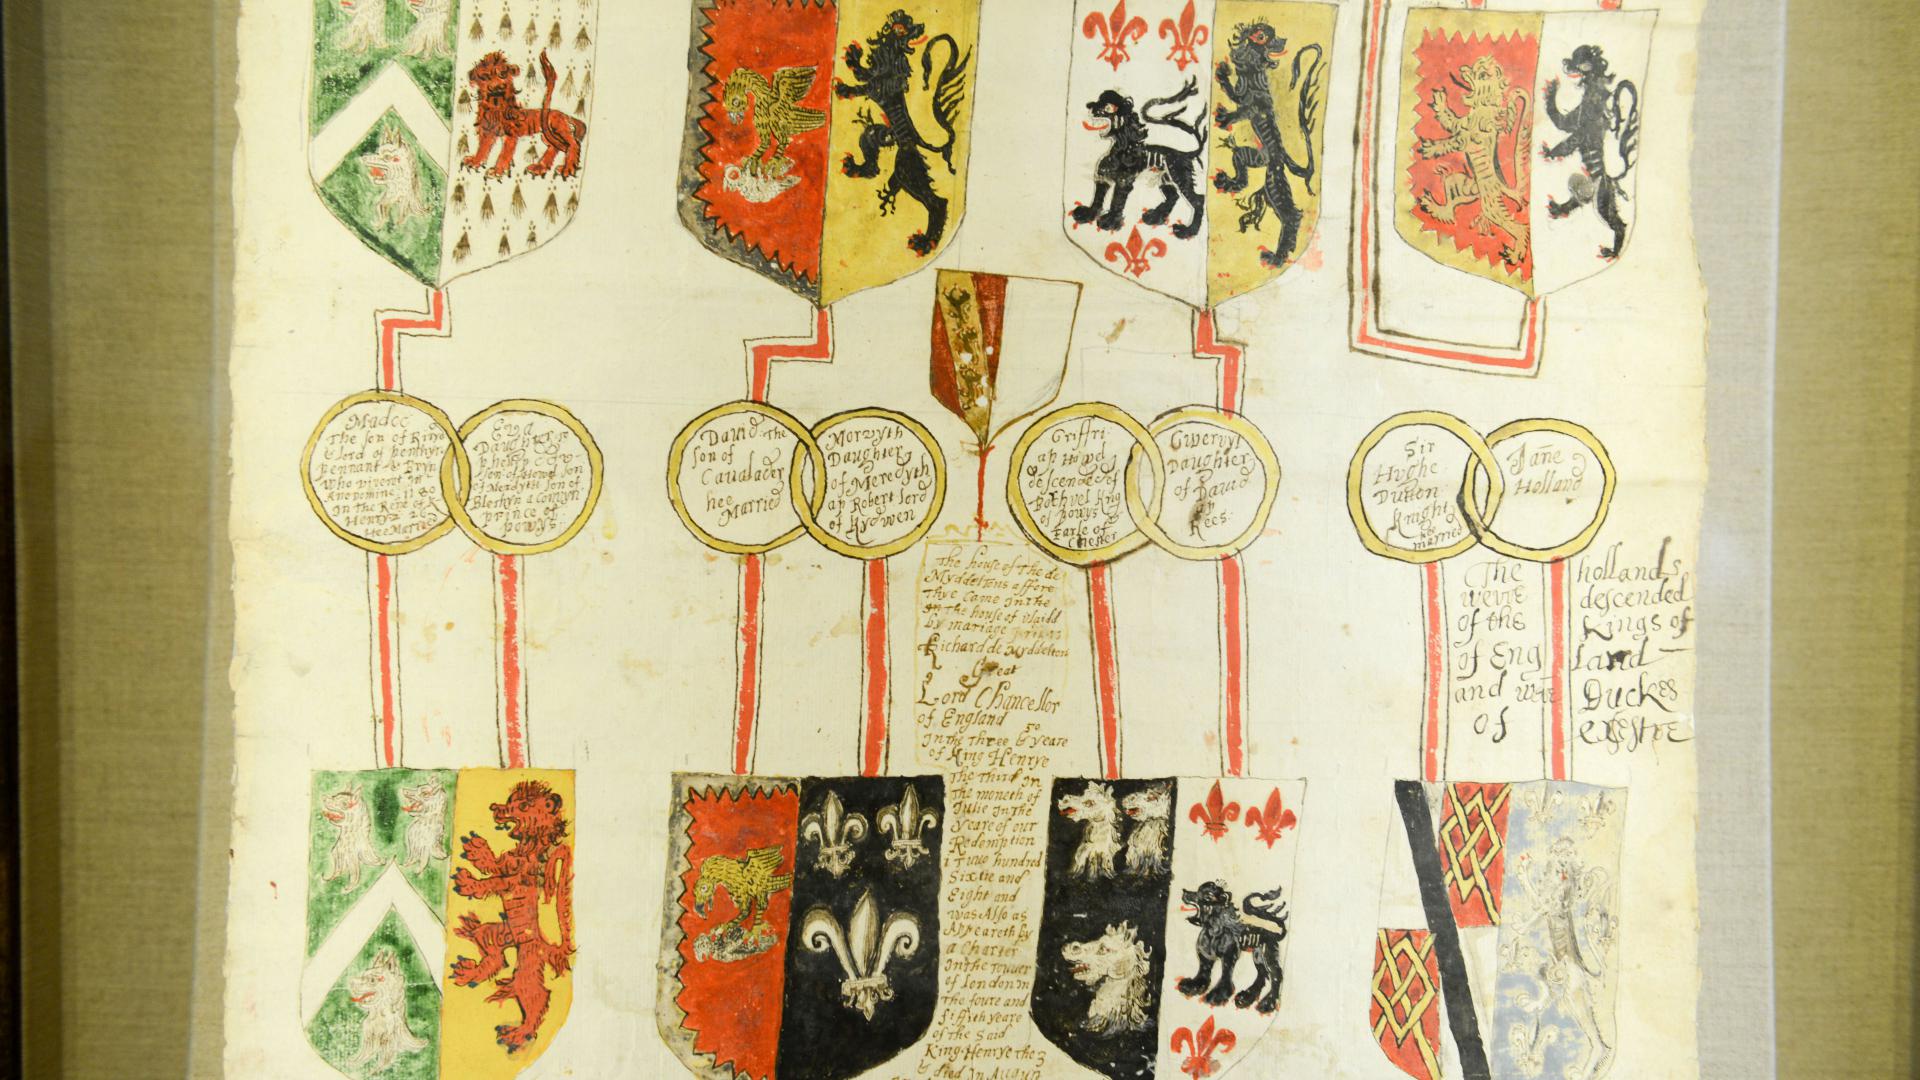 Madoc
The son of Ririd
lord of penthyn
pennant & Bryn
who vivent in
Ano domine 1180
In the Rene of K
Henry 2
Hee Married
Eva
Daughter
phellip
son of Howel son
of Meredyth son of
Blethyn a Comvyn
prince of
powys:
David The
son of
Cavalader
hee
Married
Morvyth
Daughter
of Meredyth
ap Robert lord
of Kydwen
Griffri
ap Howel
descended of
Bothvel King
of powys
Earle of
Chester
Gwervyl
Daughter
of David
ap
Rees:
Sir
Hughe
Dutton
Knight
he
married
Jane
Holland
The hollands
weire descended
of the Kings of
of Eng land
and were Duckes
of exsestre
The house of The de
Myddeltons affore
Thye came In the
In the house of vlaidd
by mariage
Richard de Myddelton
Great
Lord Chancellor
of England
In the Three & 50 yeare
of King Henrye
The third In
The moneth of
Julie In the
yeare of our
Redemption
1 Tuuo hundred
Sixtie and
Eight and
was Also as
Appeareth by
a Charter
In the Touuer
of london In
The foure and
fiftith yeare
of the Said
King Henrye the 3
& died In August